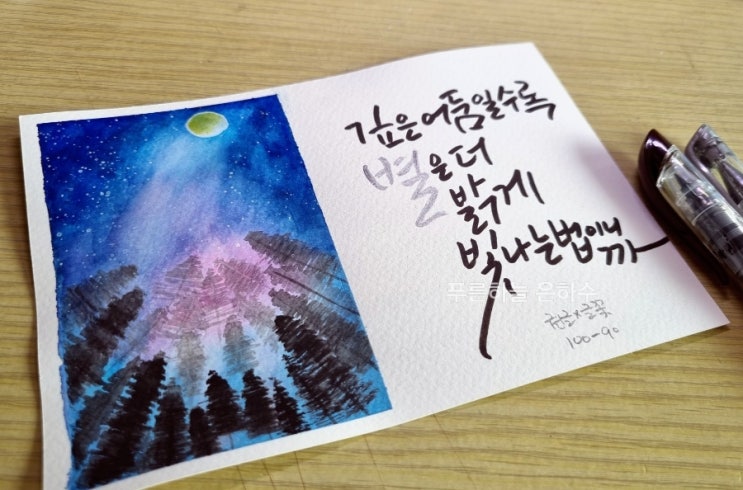 깊은 어둠일수록
별은 더
밝게
빛나는 법이니까
푸른하늘 은하수
100-90